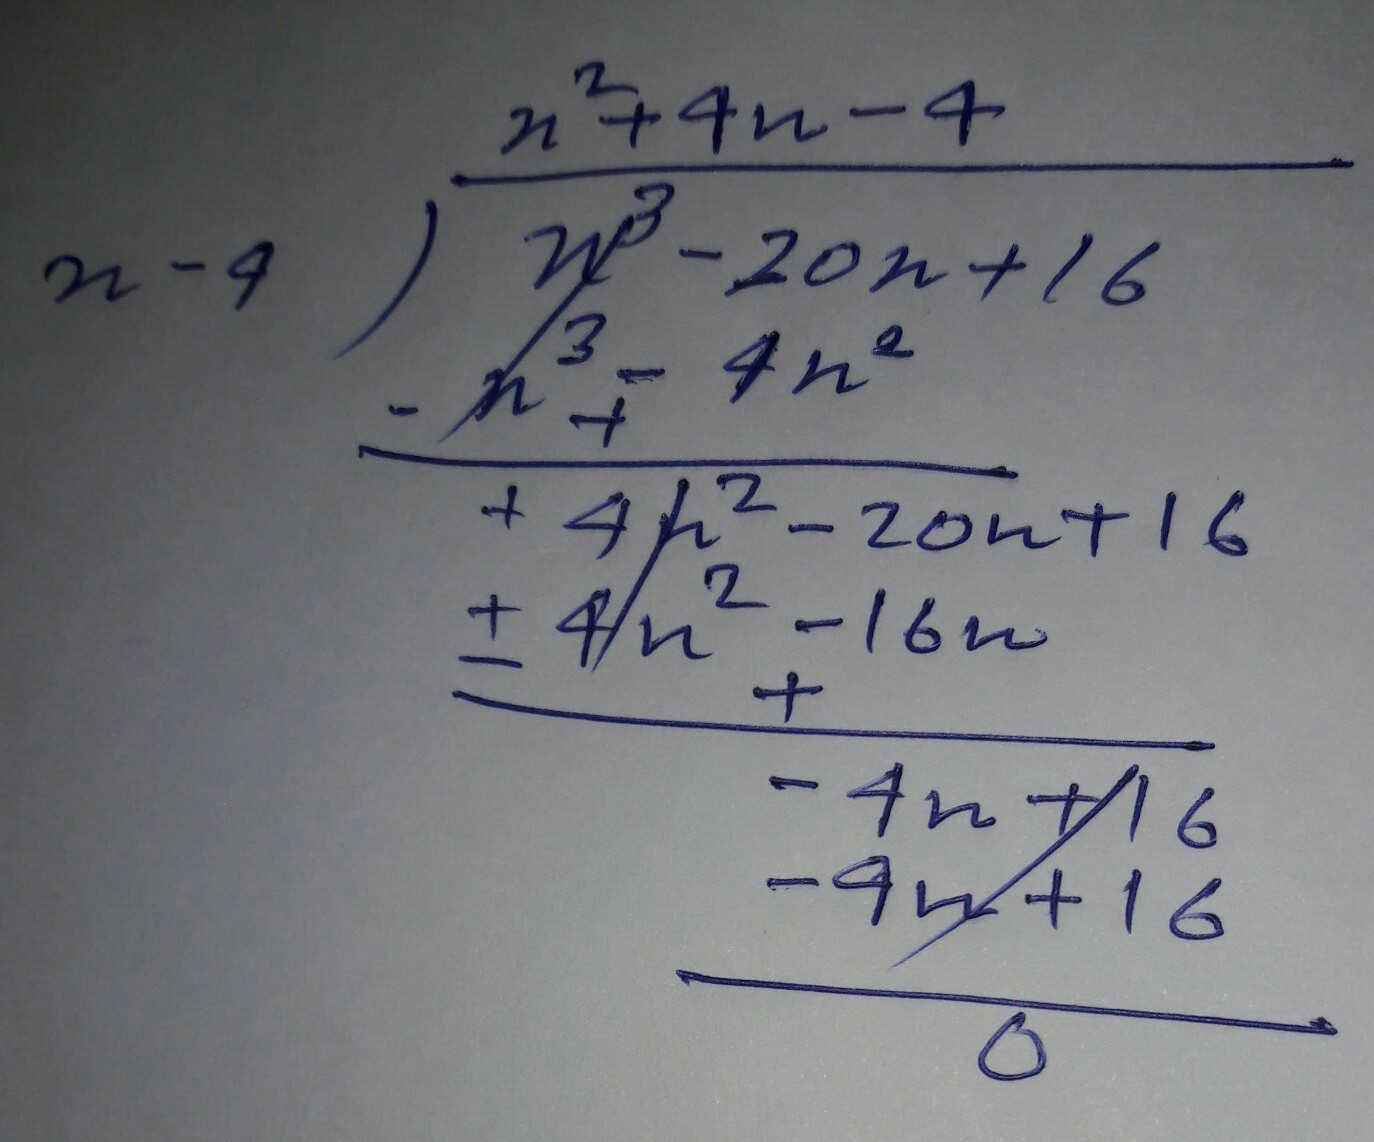 x²+4x-4
x-4 ) x³-20x+16
x³ - 4x²
- +
+ 4x²-20x+16
+ 4x² -16x
- +
-4x+16
-4x+16
0